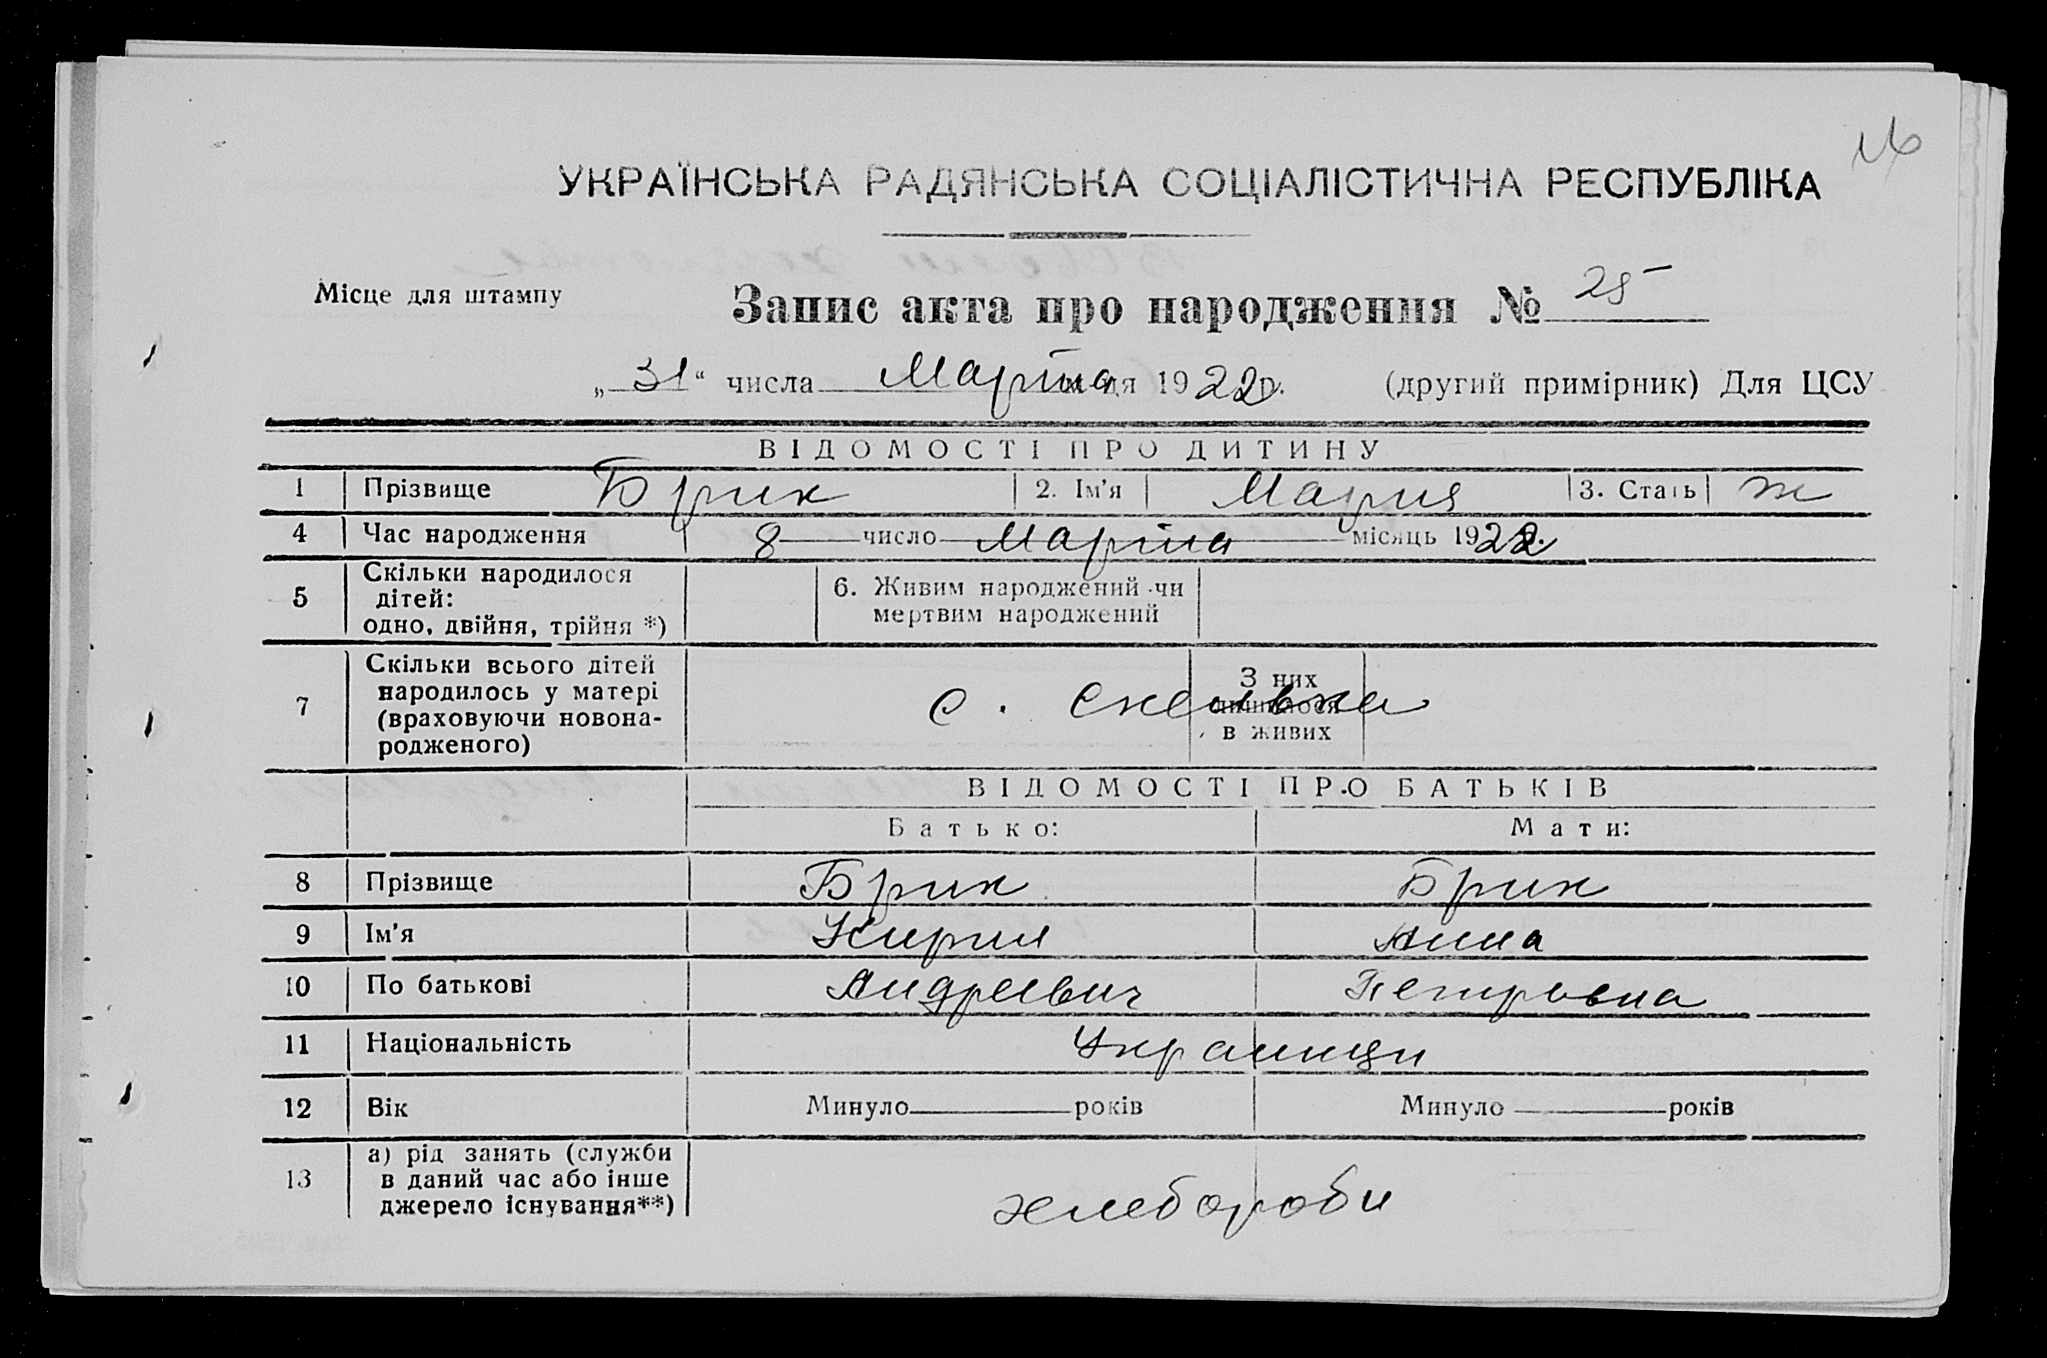 16
УКРАЇНСЬКА РАДЯНСЬКА СОЦІАЛІСТИЧНА РЕСПУБЛІКА
Місце для штампу
Запис акта про народження № 25
„31“ числа Марта місяця 1922 р. (другий примірник) Для ЦСУ
ВІДОМОСТІ ПРО ДИТИНУ
1 Прізвище Брик 2. Ім'я Мария 3. Стать ж
4 Час народження 8 число Марта місяць 1922.
5 Скільки народилося дітей: одно, двійня, трійня *) 6. Живим народжений чи мертвим народжений
7 Скільки всього дітей народилось у матері (враховуючи новонародженого) с. З них лишилося в живих
ВІДОМОСТІ ПРО БАТЬКІВ
Батько: Мати:
8 Прізвище Брик Брик
9 Ім'я Кирил Анна
10 По батькові Андреевич Петровна
11 Національність Украинци
12 Вік Минуло років Минуло років
13 а) рід занять (служби в даний час або інше джерело існування**) хлебороби